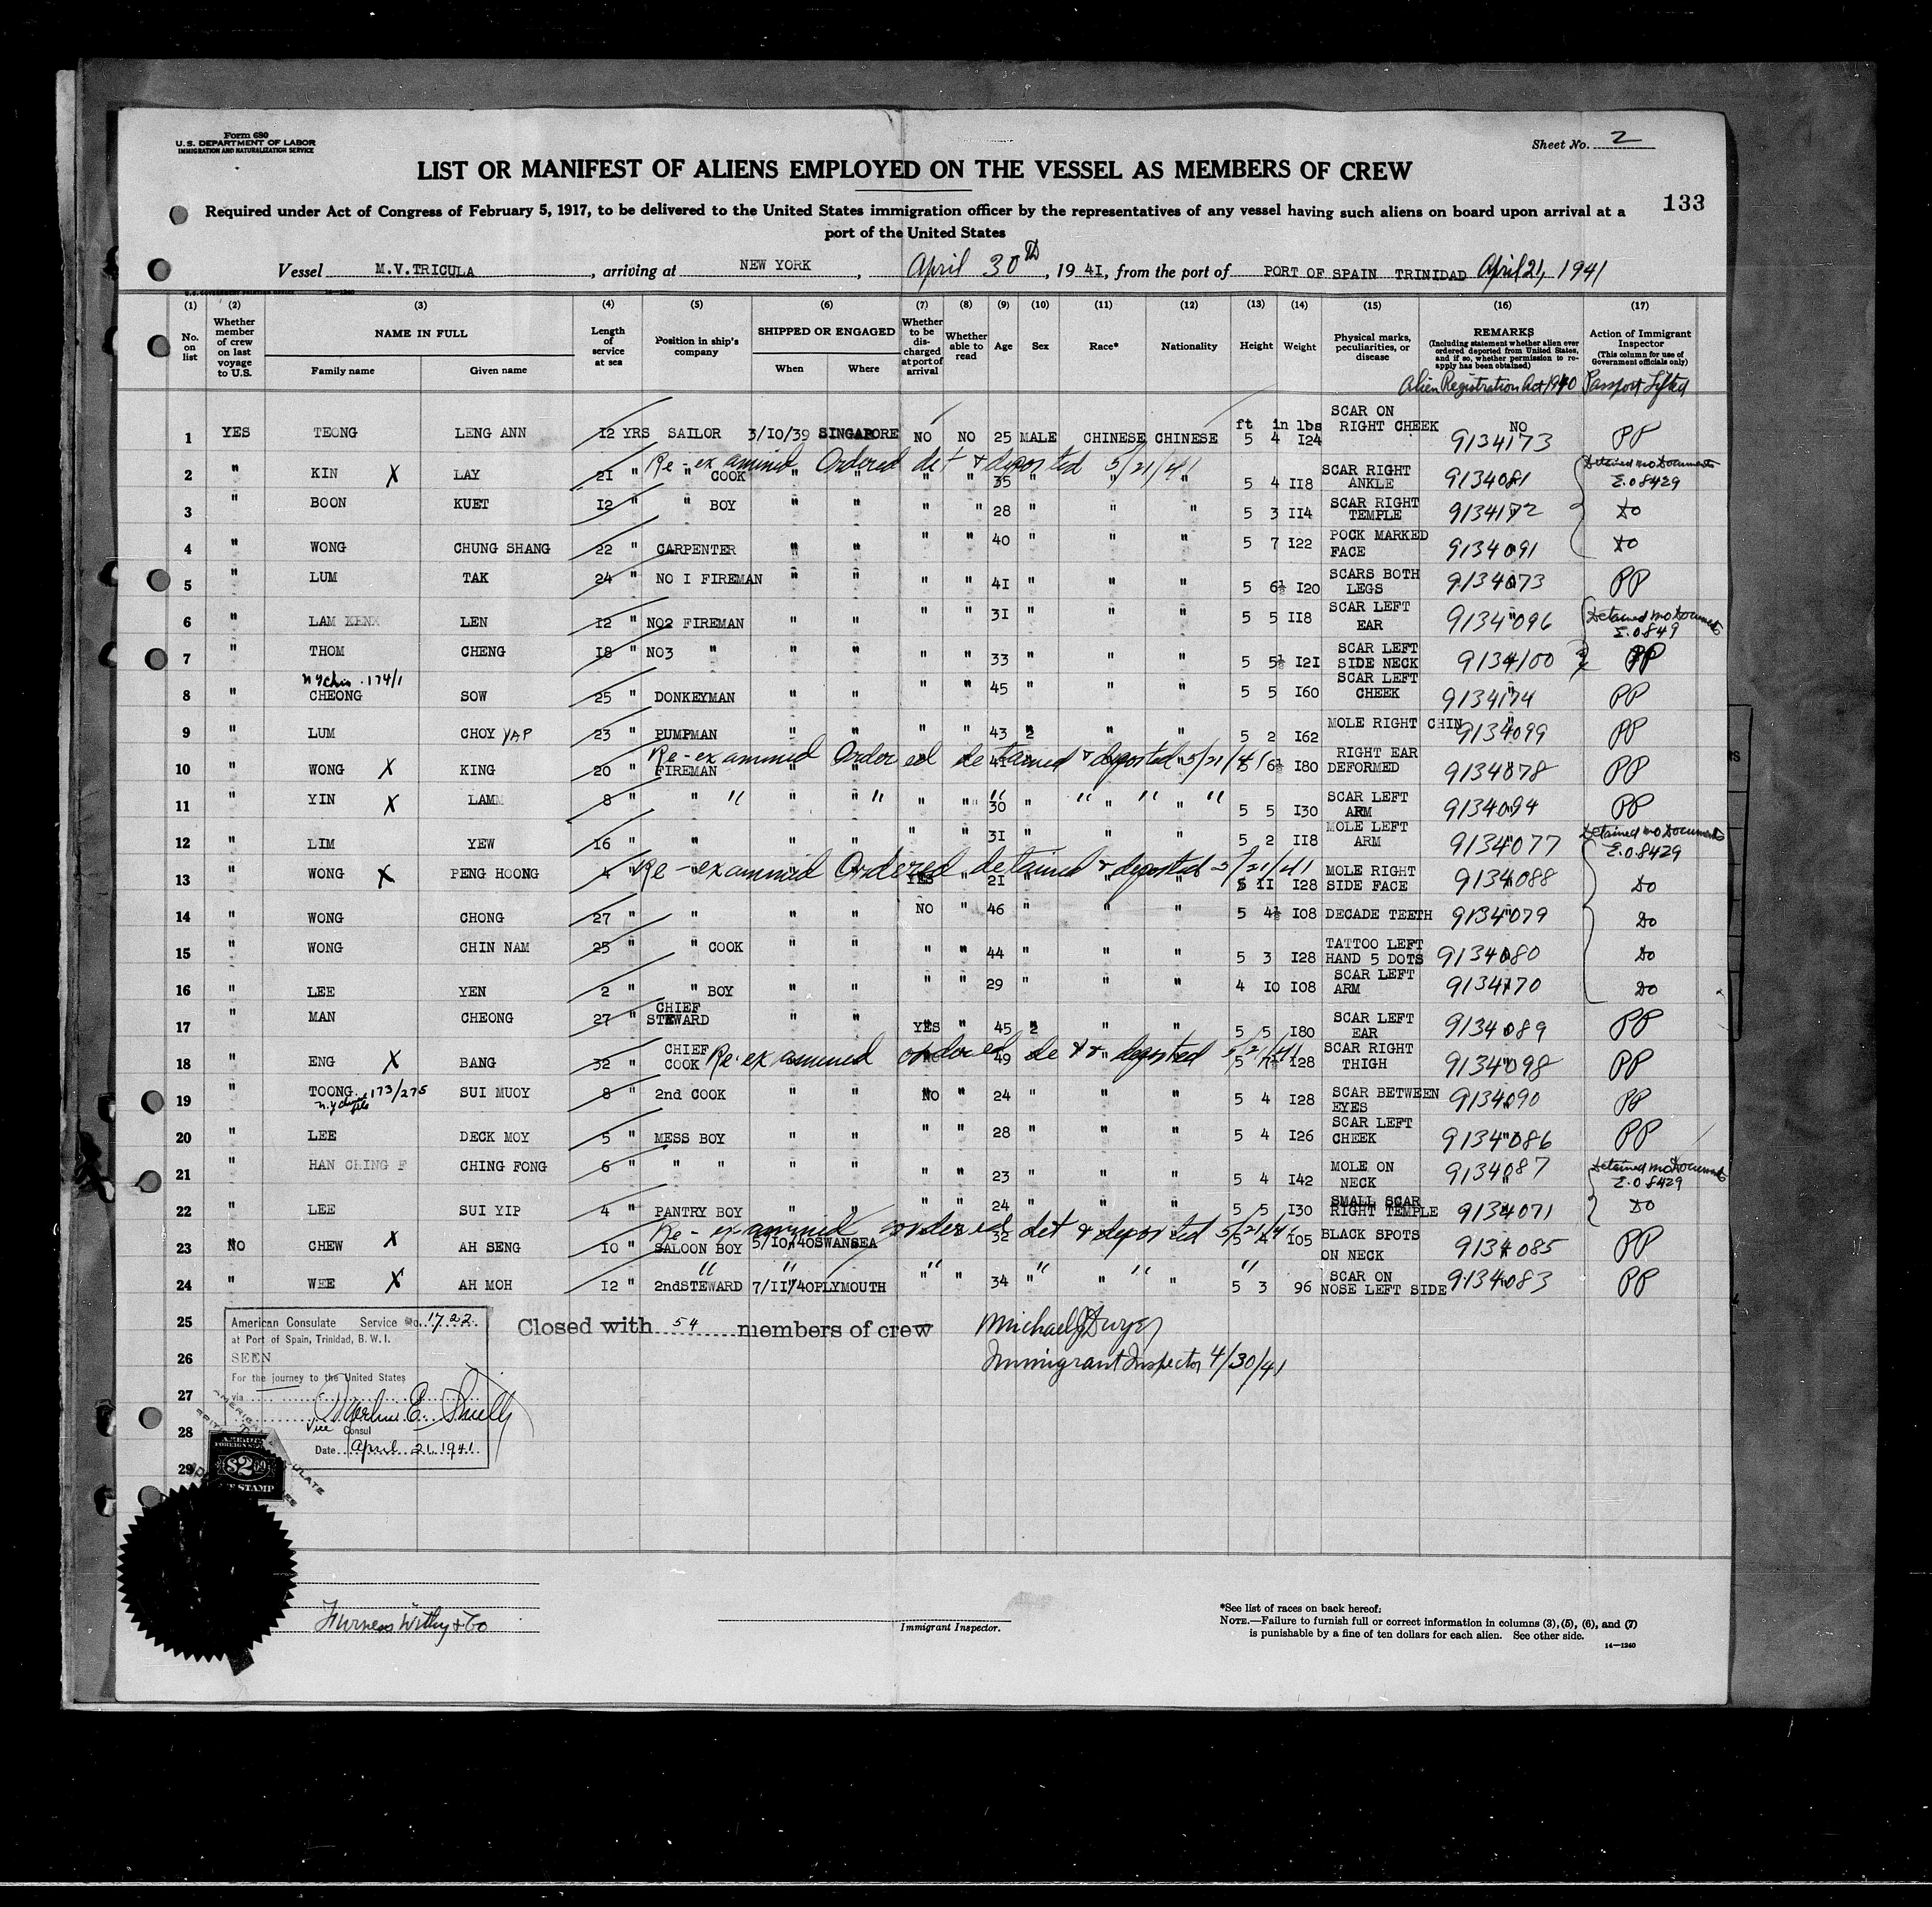 Form 680
U. S. DEPARTMENT OF LABOR
IMMIGRATION AND NATURALIZATION SERVICE
Sheet No. 2
LIST OR MANIFEST OF ALIENS EMPLOYED ON THE VESSEL AS MEMBERS OF CREW
133
Required under Act of Congress of February 5, 1917, to be delivered to the United States immigration officer by the representatives of any vessel having such aliens on board upon arrival at a
port of the United States
Vessel M.V.TRICULA, arriving at NEW YORK, April 30th, 1941, from the port of PORT OF SPAIN TRINIDAD April 21, 1941
(1) (2) (3) (4) (5) (6) (7) (8) (9) (10) (11) (12) (13) (14) (15) (16) (17)
No. on list
Whether member of crew on last voyage to U.S.
NAME IN FULL
Family name Given name
Length of service at sea
Position in ship's company
SHIPPED OR ENGAGED
When Where
Whether to be discharged at port of arrival
Whether able to read
Age Sex Race* Nationality Height Weight
Physical marks, peculiarities, or disease
REMARKS
(Including statement whether alien ever ordered deported from United States, and if so, whether permission to reapply has been obtained)
Action of Immigrant Inspector
(This column for use of Government officials only)
Alien Registration Act 1940 Passport Lifted
1 YES TEONG LENG ANN 12 YRS SAILOR 3/10/39 SINGAPORE NO NO 25 MALE CHINESE CHINESE ft 5 in 4 lbs I24 SCAR ON RIGHT CHEEK NO 9134173 PP
Re-examined Ordered det & deported 5/21/41
2 " KIN X LAY 2I " " COOK " " " " 35 " " " 5 4 II8 SCAR RIGHT ANKLE 9134081 Detained no Documents E.O 8429
3 " BOON KUET I2 " " BOY " " " " 28 " " " 5 3 II4 SCAR RIGHT TEMPLE 9134172 Do
4 " WONG CHUNG SHANG 22 " CARPENTER " " " " 40 " " " 5 7 I22 POCK MARKED FACE 9134091 Do
5 " LUM TAK 24 " NO I FIREMAN " " " " 4I " " " 5 6½ I20 SCARS BOTH LEGS 9134073 PP
6 " LAM LEN I2 " NO2 FIREMAN " " " " 3I " " " 5 5 II8 SCAR LEFT EAR 9134096 Detained no Documents E.O 849
7 " THOM CHENG I8 " NO3 " " " " " 33 " " " 5 5½ I2I SCAR LEFT SIDE NECK 9134100 PP
N Y Chin. 174/1
8 " CHEONG SOW 25 " DONKEYMAN " " " " 45 " " " 5 5 I60 SCAR LEFT CHEEK 9134174 PP
9 " LUM CHOY YAP 23 " PUMPMAN " " " " 43 " " " 5 2 I62 MOLE RIGHT CHIN 9134099 PP
Re-examined Ordered detained & deported 5/21/41
10 " WONG X KING 20 " FIREMAN " " " " 41 " " " 5 6½ I80 RIGHT EAR DEFORMED 9134078 PP
11 " YIN X LAMM 8 " " " " " " 30 " " " 5 5 I30 SCAR LEFT ARM 9134094 PP
12 " LIM YEW I6 " " " " " " 3I " " " 5 2 II8 MOLE LEFT ARM 9134077 Detained no Documents E.O. 8429
Re-examined Ordered detained & deported 5/21/41
13 " WONG X PENG HOONG 4 " " " " YES " 2I " " " 5 II I28 MOLE RIGHT SIDE FACE 9134088 Do
14 " WONG CHONG 27 " " " " NO " 46 " " " 5 4½ I08 DECADE TEETH 9134079 Do
15 " WONG CHIN NAM 25 " " COOK " " " " 44 " " " 5 3 I28 TATTOO LEFT HAND 5 DOTS 9134080 Do
16 " LEE YEN 2 " " BOY " " " " 29 " " " 4 I0 I08 SCAR LEFT ARM 9134170 Do
17 " MAN CHEONG 27 " CHIEF STEWARD " " YES " 45 " " " 5 5 I80 SCAR LEFT EAR 9134089 PP
Re-examined ordered det & deported 5/21/41
18 " ENG X BANG 32 " CHIEF COOK " " " " 49 " " " 5 7½ I28 SCAR RIGHT THIGH 9134098 PP
19 " TOONG 173/275 SUI MUOY 8 " 2nd COOK " " NO " 24 " " " 5 4 I28 SCAR BETWEEN EYES 9134090 PP
20 " LEE DECK MOY 5 " MESS BOY " " " " 28 " " " 5 4 I26 SCAR LEFT CHEEK 9134086 PP
21 " HAN CHING F CHING FONG 6 " " " " " " " 23 " " " 5 4 I42 MOLE ON NECK 9134087 Detained no Documents E.O 8429
22 " LEE SUI YIP 4 " PANTRY BOY " " " " 24 " " " 5 5 I30 SMALL SCAR RIGHT TEMPLE 9134071 Do
Re-examined ordered det & deported 5/21/41
23 NO CHEW X AH SENG I0 " SALOON BOY 5/10/40 SWANSEA " " 32 " " " 5 4 I05 BLACK SPOTS ON NECK 9134085 PP
24 " WEE X AH MOH I2 " 2nd STEWARD 7/II/40 PLYMOUTH " " 34 " " " 5 3 96 SCAR ON NOSE LEFT SIDE 9134083 PP
25
Closed with 54 members of crew
Michael J Dwyer
26
Immigrant Inspector 4/30/41
27
28
29
American Consulate Service No. 1722
at Port of Spain, Trinidad, B. W. I.
SEEN
For the journey to the United States
via
Vice Consul
Date April 21, 1941
$2
STAMP
Furness Withy & Co
Immigrant Inspector.
*See list of races on back hereof.
NOTE.—Failure to furnish full or correct information in columns (3), (5), (6), and (7)
is punishable by a fine of ten dollars for each alien. See other side.
14—1240